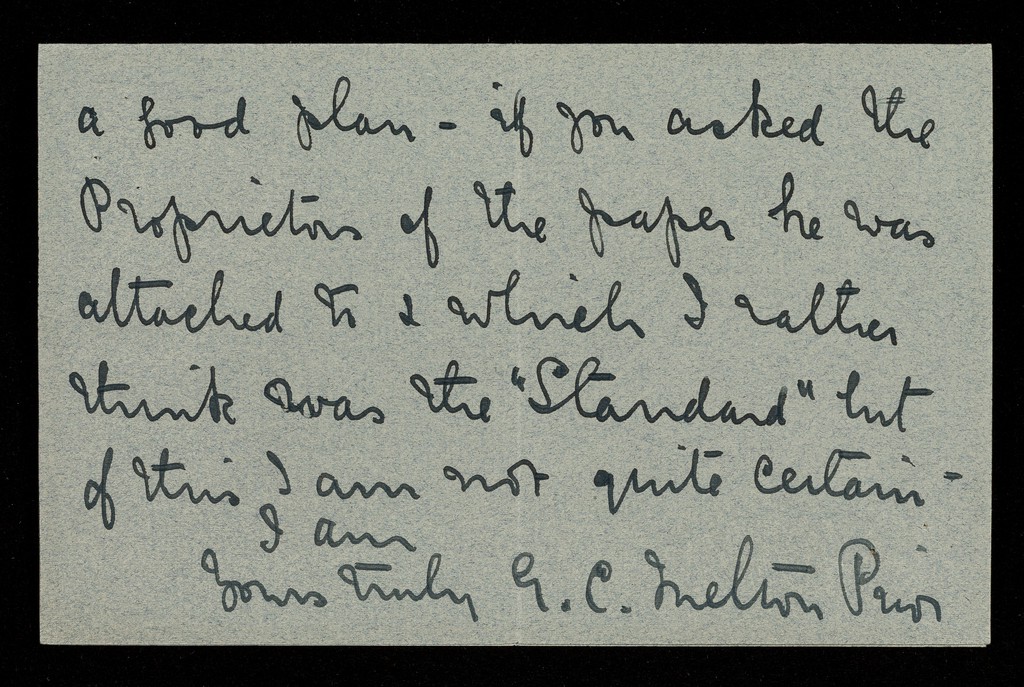 a good plan - if you asked the
Proprietors of the paper he was
attached to & which I rather
think was the "Standard" but
of this I am not quite certain -
I am
Yours truly G. C. Melton Prior